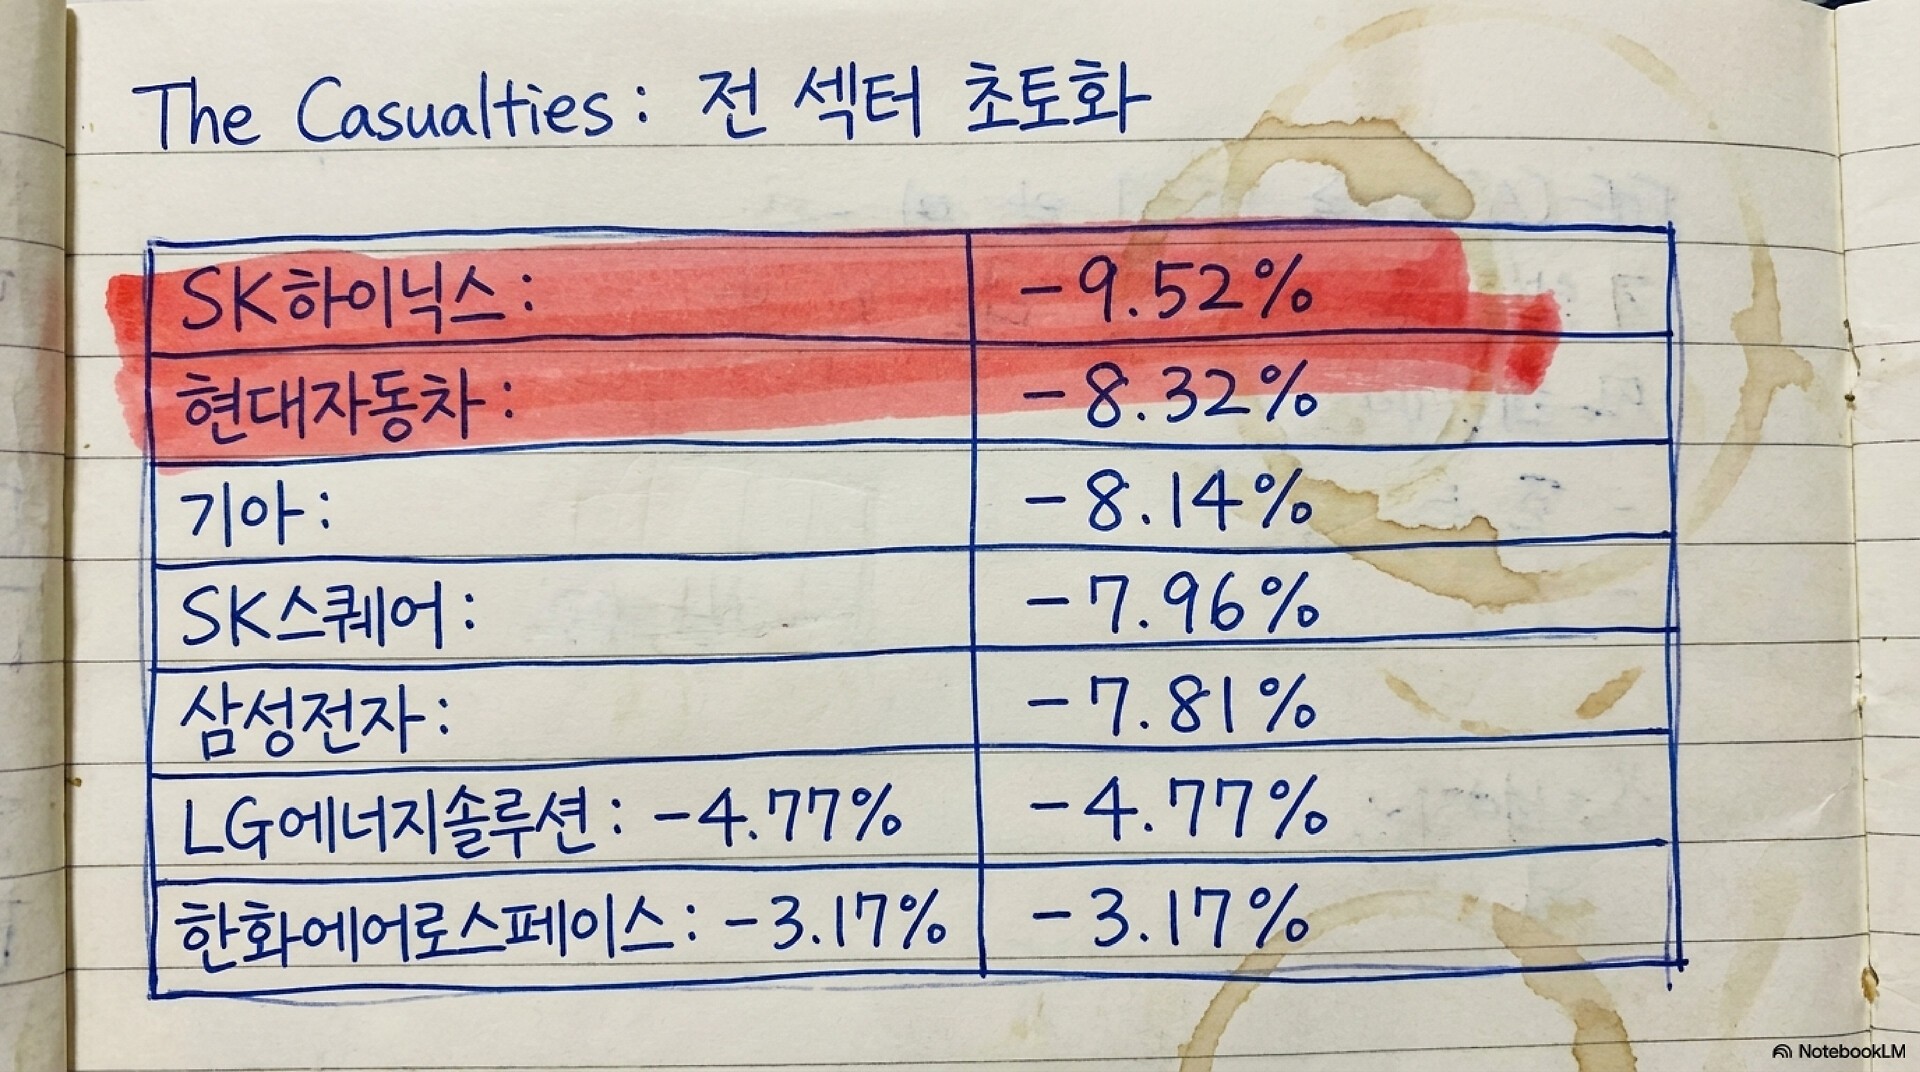 The Casualties: 전 섹터 초토화
SK하이닉스: -9.52%
현대자동차: -8.32%
기아: -8.14%
SK스퀘어: -7.96%
삼성전자: -7.81%
LG에너지솔루션: -4.77% -4.77%
한화에어로스페이스: -3.17% -3.17%
NotebookLM